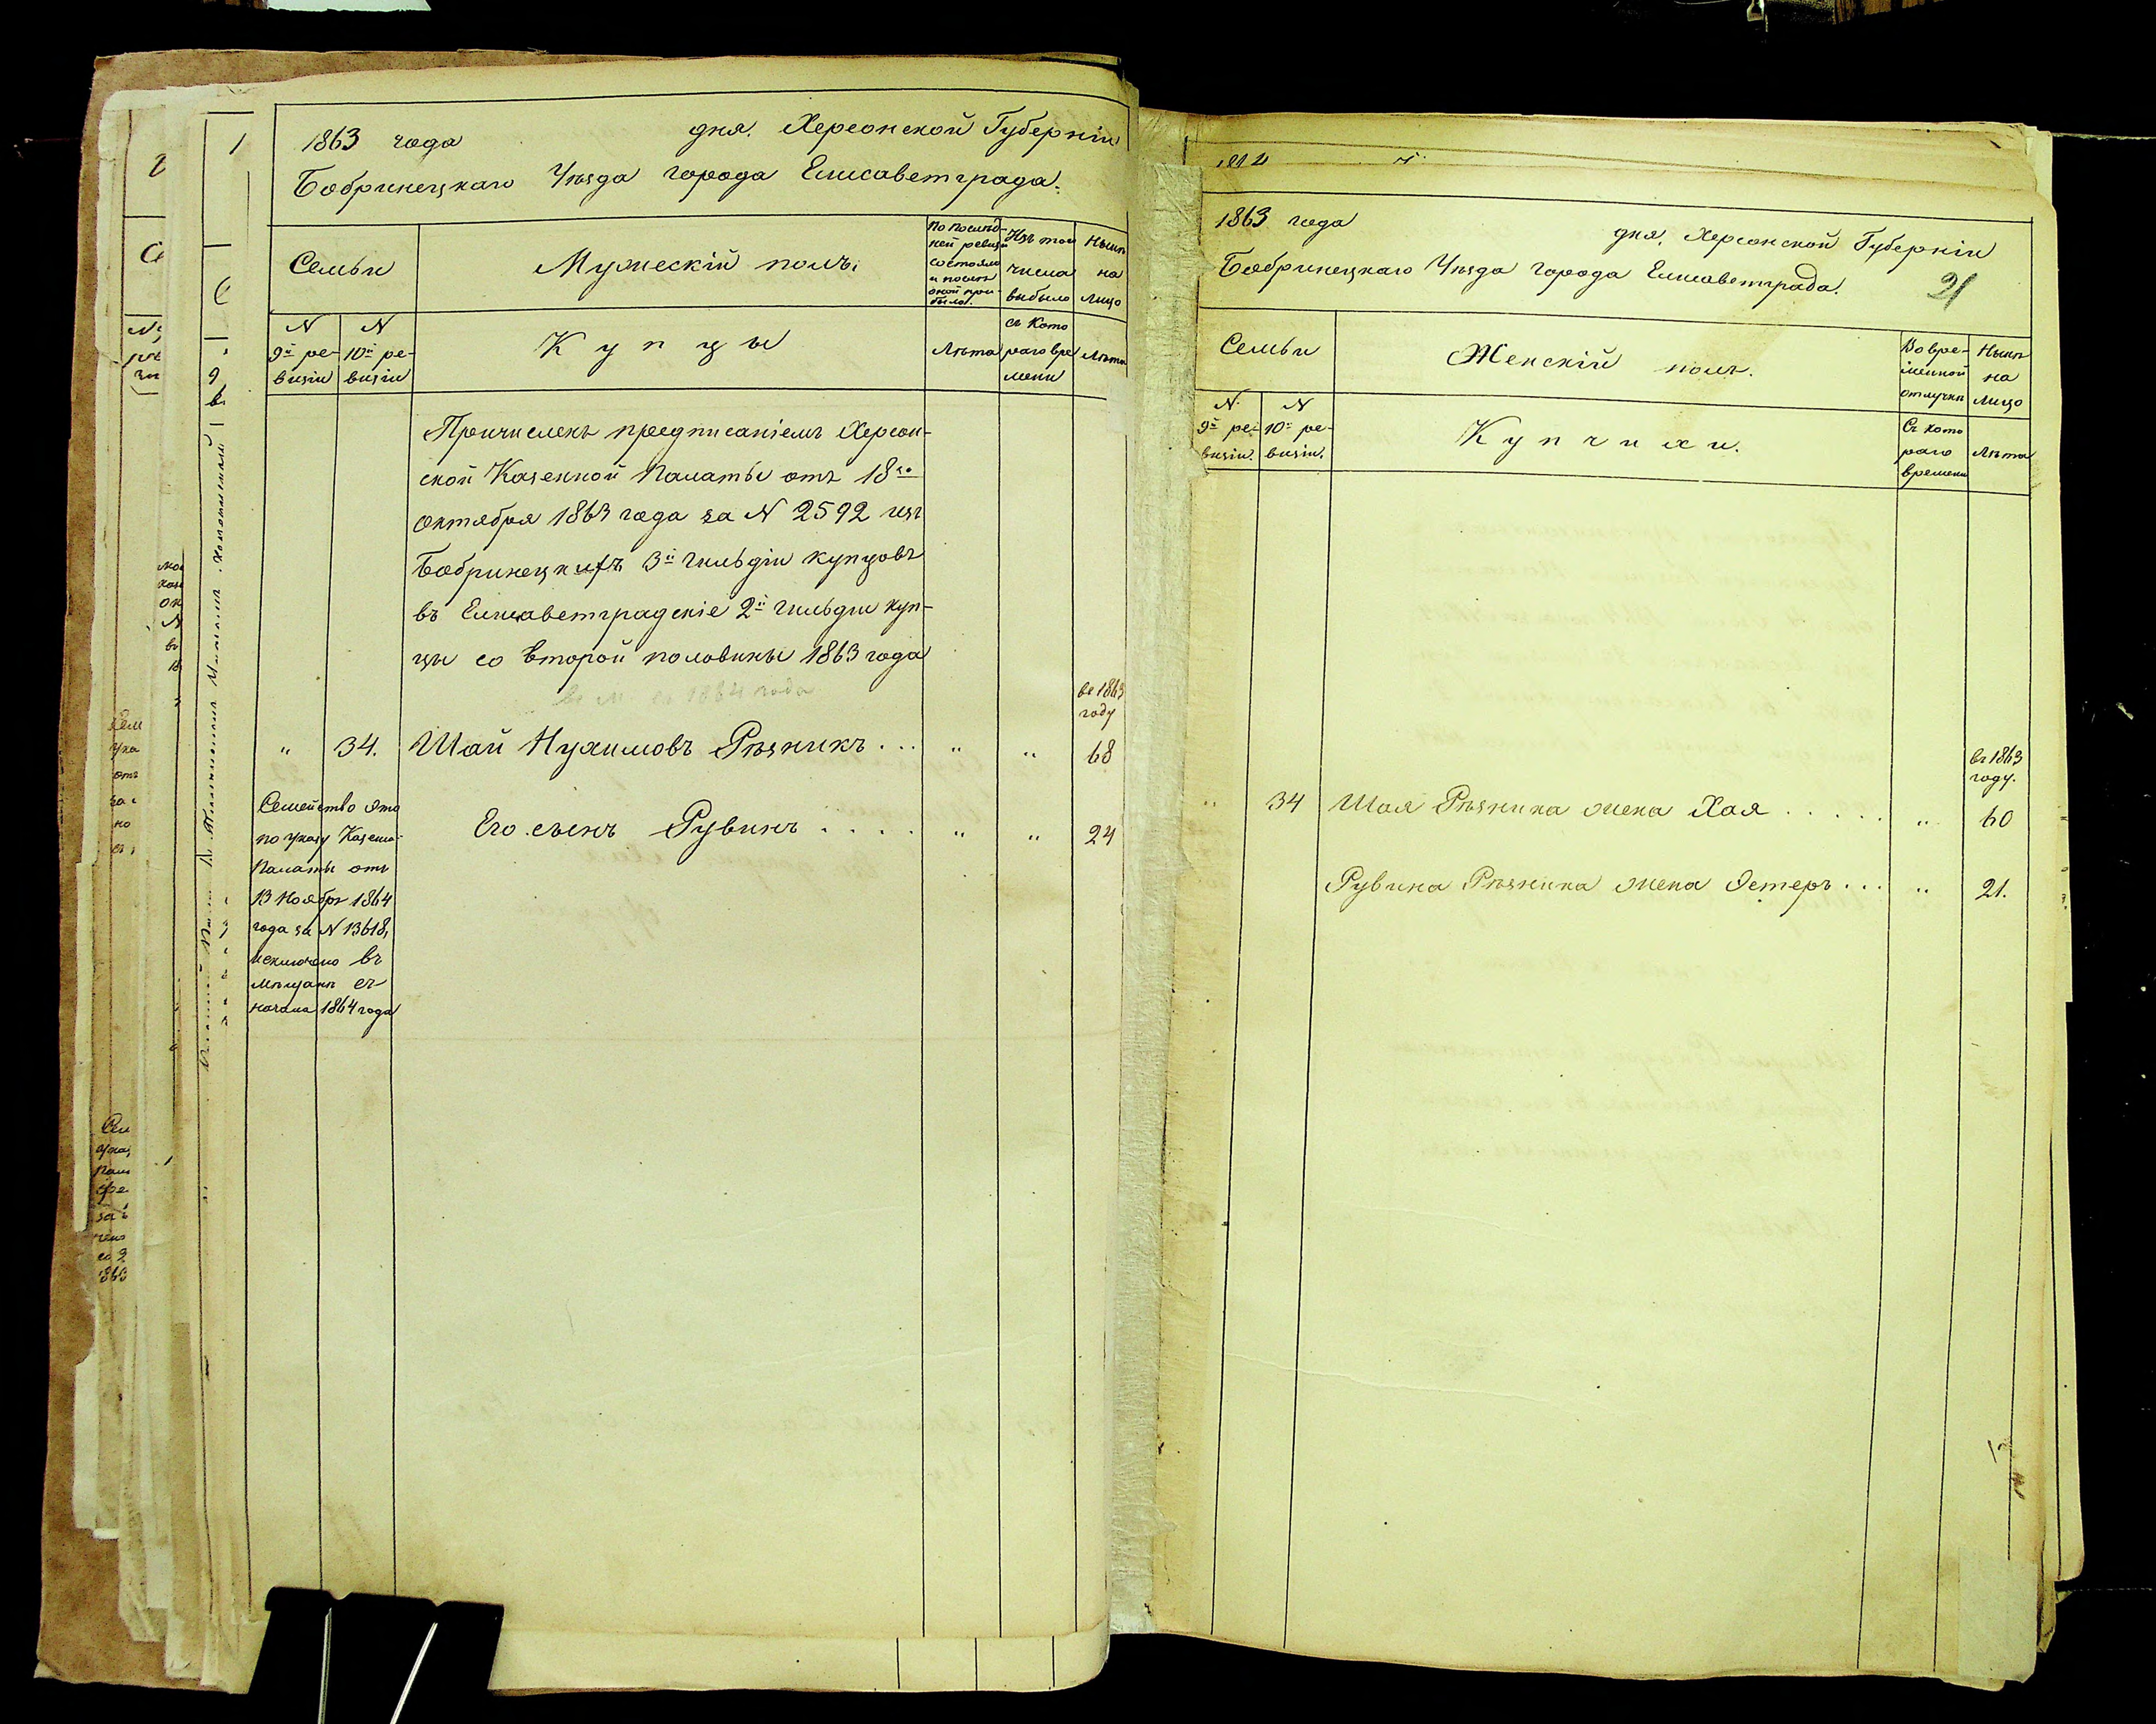 1863 года дня. Херсонской Губерніи
Бобринецкаго Уѣзда города Елисаветграда.
Семьи
Мужескій полъ.
По послѣд-
ней ревизіи
состояло
и послѣ
оной при-
было.
Изъ того
числа
выбыло
Нынѣ
на
лицо
N
9й ре-
визіи
N
10й ре-
визіи
Купцы
Лѣта
съ кото
раго вре
мени
Лѣта
Причисленъ предписаніемъ Херсон-
ской Казенной Палаты отъ 18го
октября 1863 года за N 2592 изъ
Бобринецкихъ 3й гильдіи купцовъ
въ Елисаветградскіе 2й гильдіи куп-
цы со второй половины 1863 года
1864 года
въ 1863
году
" 34. Шай Нухимовъ Рѣзникъ... " " 68
Его сынъ Рувинъ.... " " 24
Семейство это
по указу Казенной
Палаты отъ
13 Ноября 1864
года за N 13618,
исключено въ
мѣщане съ
начала 1864 года
1863 года дня. Херсонской Губерніи
Бобринецкаго Уѣзда города Елисаветграда.
21
Семьи
Женскій полъ.
Во вре-
менной
отлучкѣ
Нынѣ
на
лицо
N.
9й ре-
визіи.
N
10й ре-
визіи.
Купчихи.
Съ кото
раго
времени
Лѣта
въ 1863
году.
" 34 Шая Рѣзника жена Хая..... " 60
Рувина Рѣзника жена Эстеръ... " 21.